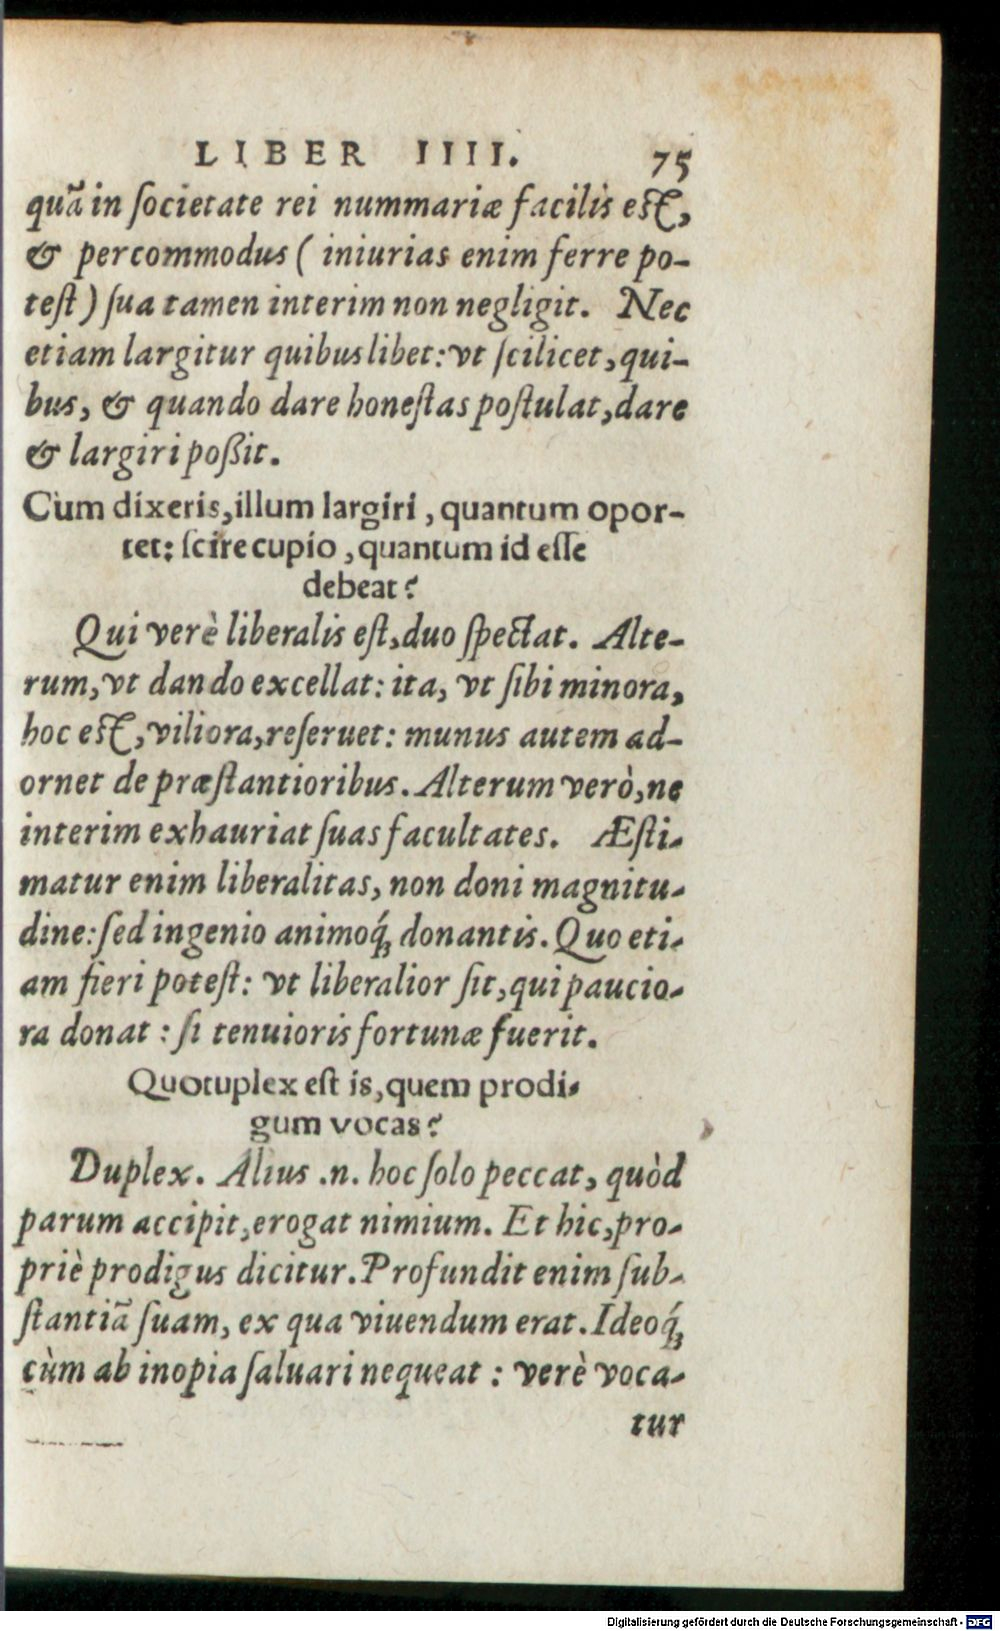 LIBER IIII. 75
quā in ſocietate rei nummariæ facilis eſt,
& percommodus ( iniurias enim ferre po-
teſt ) ſua tamen interim non negligit. Nec
etiam largitur quibuslibet: vt ſcilicet, qui-
bus, & quando dare honeſtas poſtulat, dare
& largiri poßit.
Cùm dixeris, illum largiri, quantum opor-
tet: ſcire cupio, quantum id eſſe
debeat?
Qui verè liberalis eſt, duo ſpectat. Alte-
rum, vt dando excellat: ita, vt ſibi minora,
hoc eſt, viliora, reſeruet: munus autem ad-
ornet de præſtantioribus. Alterum verò, ne
interim exhauriat ſuas facultates. Æſti-
matur enim liberalitas, non doni magnitu-
dine: ſed ingenio animoq́; donantis. Quo eti-
am fieri poteſt: vt liberalior ſit, qui paucio-
ra donat : ſi tenuioris fortunæ fuerit.
Quotuplex eſt is, quem prodi-
gum vocas?
Duplex. Alius .n. hoc ſolo peccat, quòd
parum accipit, erogat nimium. Et hic, pro-
priè prodigus dicitur. Profundit enim ſub-
ſtantiā ſuam, ex qua viuendum erat. Ideoq́;
cùm ab inopia ſaluari nequeat : verè voca-
tur
Digitalisierung gefördert durch die Deutsche Forschungsgemeinschaft - DFG